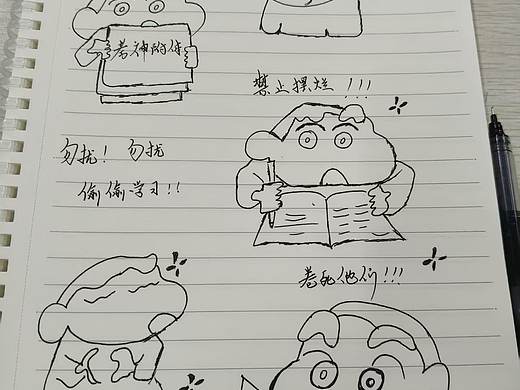 考神附体
禁止摆烂!!!
勿扰! 勿扰
偷偷学习!!
卷死他们!!!